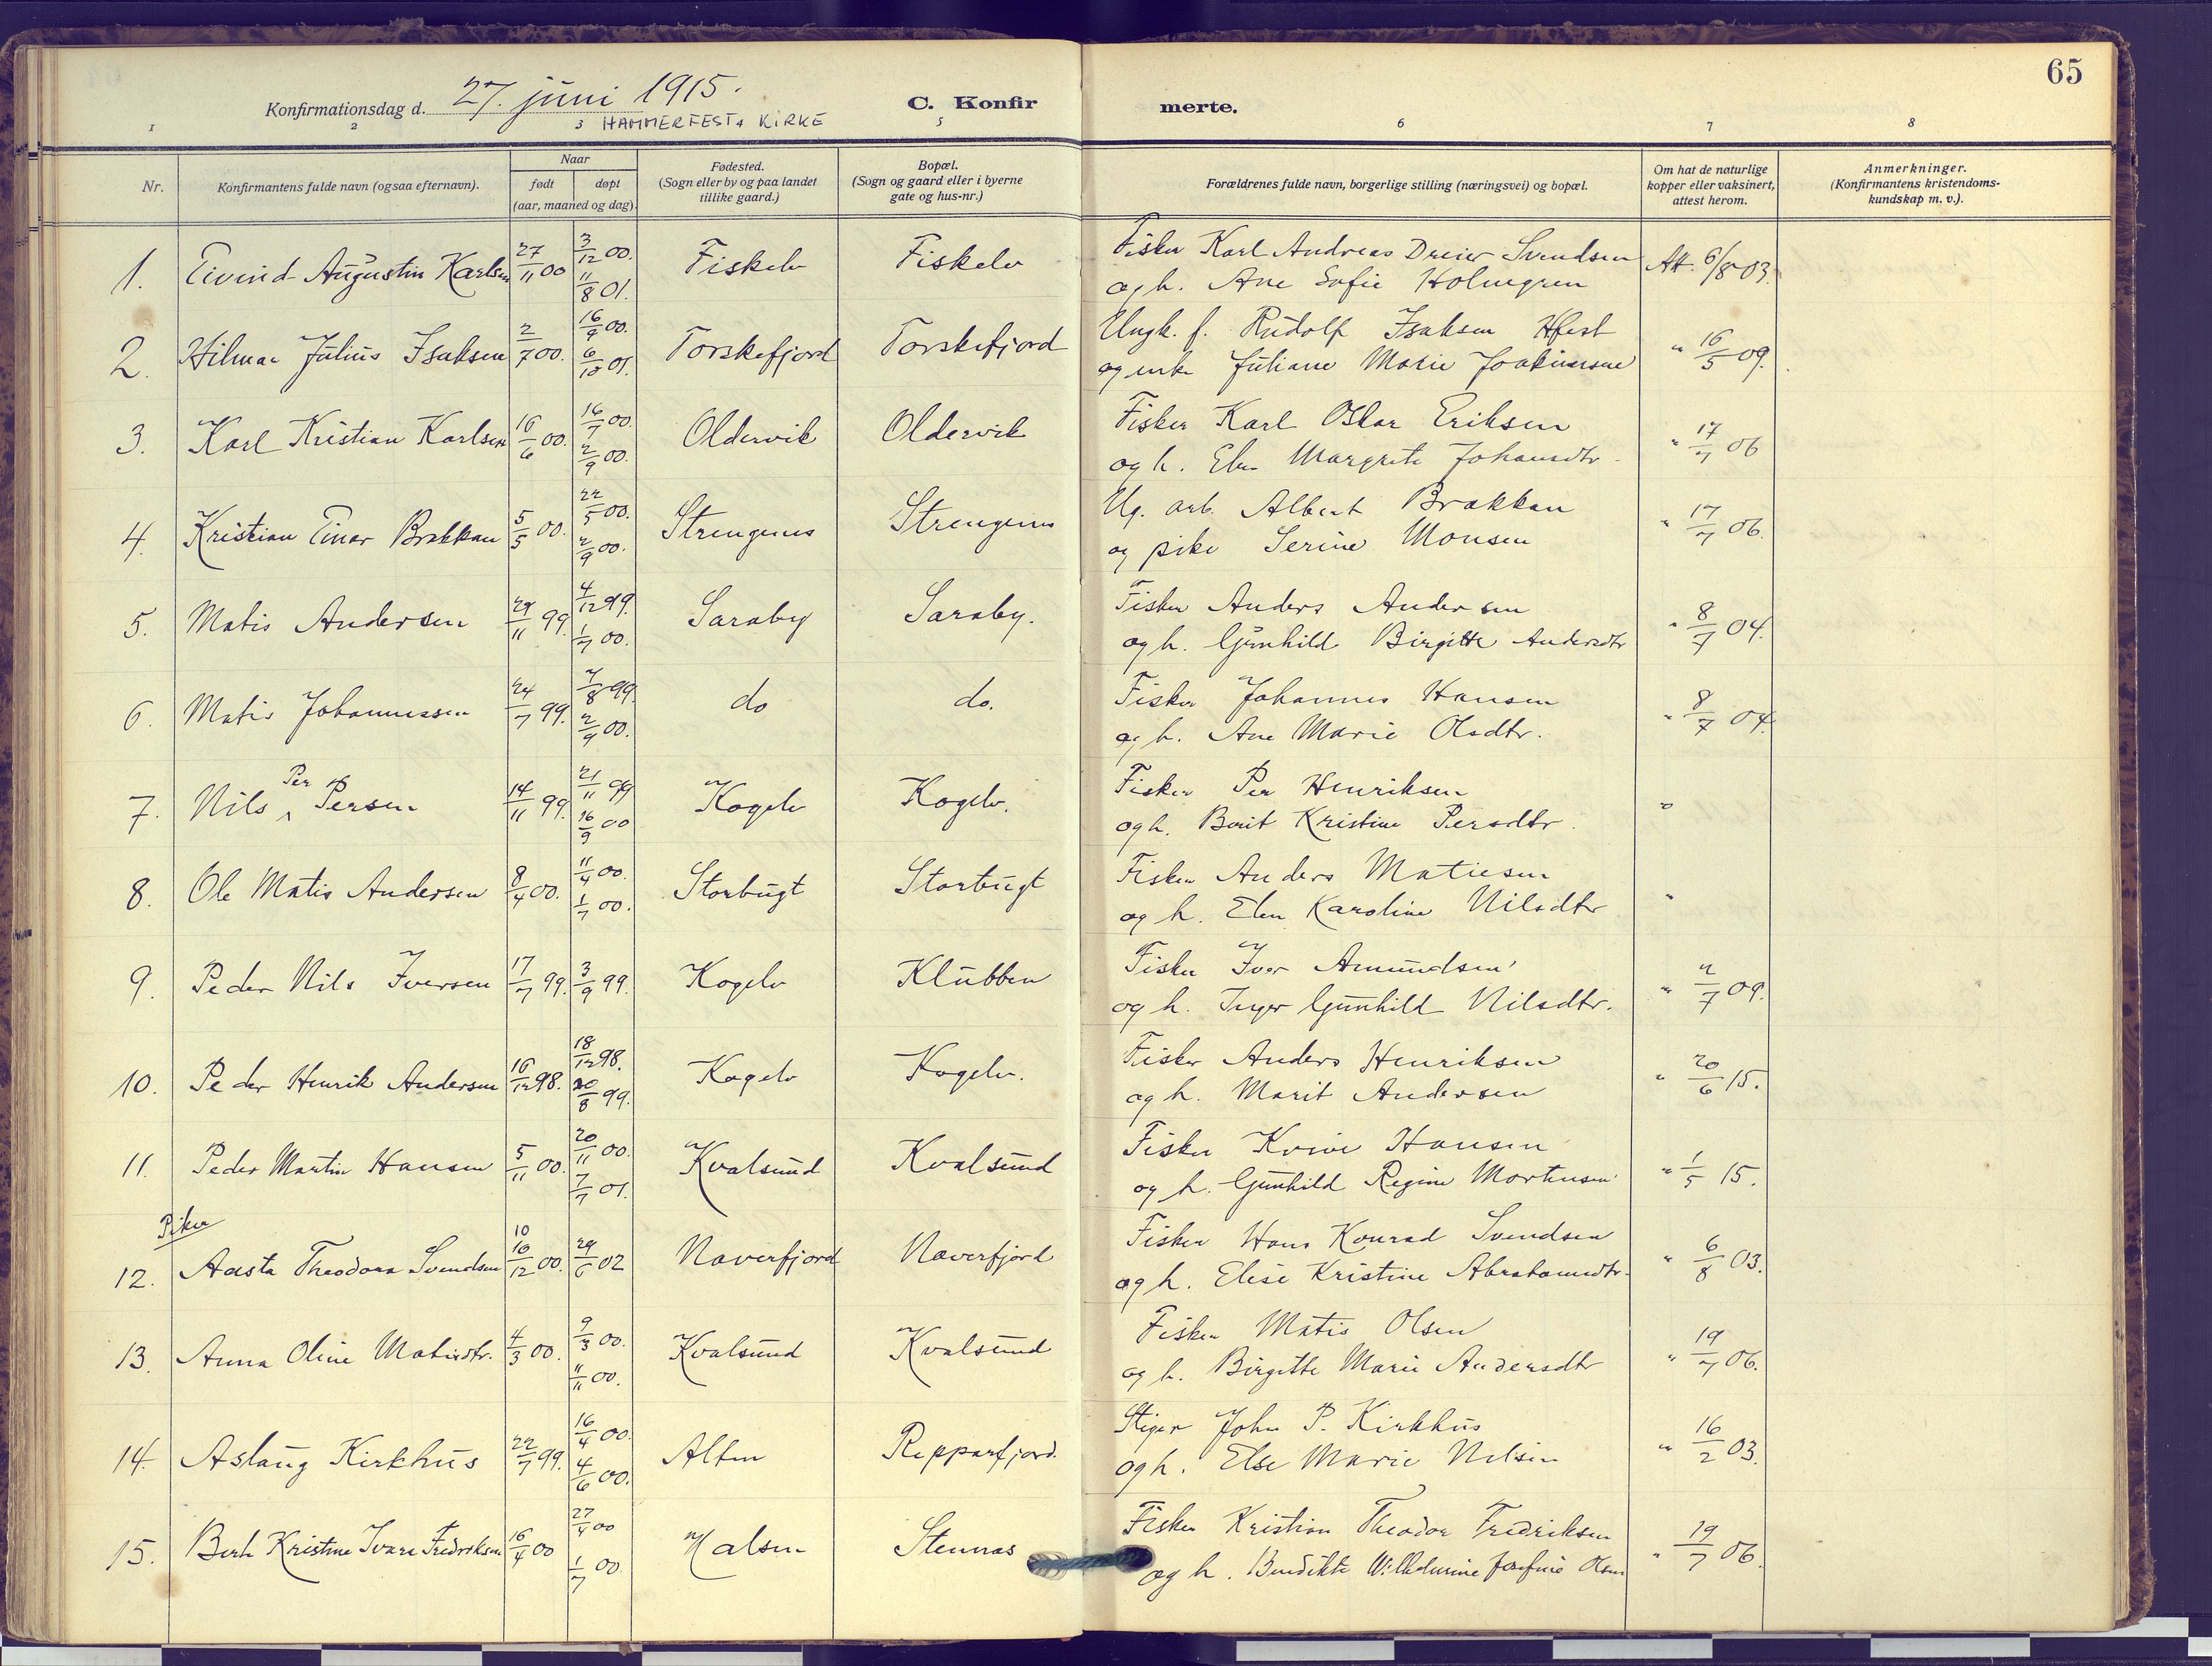 65
Konfirmationsdag d. 27. juni 1915.
HAMMERFEST KIRKE
C. Konfirmerte.
1 2 3 4 5 6 7 8
Nr.
Konfirmantens fulde navn (ogsaa efternavn).
Naar
født
døpt
(aar, maaned og dag).
Fødested.
(Sogn eller by og paa landet
tillike gaard.)
Bopæl.
(Sogn og gaard eller i byerne
gate og hus-nr.)
Forældrenes fulde navn, borgerlige stilling (næringsvei) og bopæl.
Om hat de naturlige
kopper eller vaksinert,
attest herom.
Anmerkninger.
(Konfirmantens kristendoms-
kundskap m. v.).
1. Eivind Augustin Karlsen 27/11 00 3/12 00. 11/8 01. Fiskelv Fiskelv
Fisker Karl Andreas Dreier Svendsen
og h. Ane Sofie Holmgren
Att. 6/8 03.
2. Hilmar Julius Isaksen 2/7 00. 16/9 00. 6/10 01. Torskefjord Torskefjord
Ungk. f. Rudolf Isaksen Hfest
og enke Juliane Marie
" 16/5 09.
3. Karl Kristian Karlsen 16/6 00. 16/7 00. 2/9 00. Oldervik Oldervik
Fisker Karl Oskar Eriksen
og h. Elen Margrete Johansdtr.
" 17/7 06
4. Kristian Einar Brakkan 5/5 00. 22/5 00. 2/9 00. Strengenes Strengenes
Ug. arb. Albert Brakkan
og pike Serine Monsen
" 17/7 06.
5. Matis Andersen 29/11 99. 4/12 99. 1/7 00. Saraby Saraby.
Fisker Anders Andersen
og h. Gunhild Birgitte Andersdtr
" 8/7 04.
6. Matis Johannessen 24/7 99. 7/8 99. 2/9 00. do do.
Fisker Johannes Hansen
og h. Ane Marie Olsdtr.
" 8/7 04.
7. Nils Per Persen 14/11 99. 21/11 99 16/9 00 Kogelv Kogelv.
Fisker Per Henriksen
og h. Berit Kristine Persdtr.
"
8. Ole Matis Andersen 8/4 00. 11/4 00. 1/7 00. Storbugt Storbugt
Fisker Anders Matiesen
og h. Elen Karoline Nilsdtr
"
9. Peder Nils Iversen 17/7 99. 3/9 99. Kogelv Klubben
Fisker Iver Amundsen
og h. Inger Gunhild Nilsdtr.
" 2/7 09.
10. Peder Henrik Andersen 16/12 98. 18/12 98. 20/8 99. Kogelv Kogelv.
Fisker Anders Henriksen
og h. Marit Andersen
" 20/6 15.
11. Peder Martin Hansen 5/11 00. 20/11 00. 7/7 01. Kvalsund Kvalsund
Fisker Hansen
og h. Gunhild Regine Mortensen
" 1/5 15.
Piker
12. Aasta Theodora Svendsen 10 10/12 00. 29/6 02 Naverfjord Naverfjord
Fisker Hans Konrad Svendsen
og h. Elise Kristine Abrahamsdtr.
" 6/8 03.
13. Anna Oline Matisdtr. 4/3 00. 9/3 00. 11/11 00. Kvalsund Kvalsund
Fisker Matis Olsen
og h. Birgitte Marie Andersdtr
" 19/7 06.
14. Aslaug Kirkhus 22/7 99. 16/4 00. 4/6 00. Alten Repparfjord.
Stiger John P. Kirkhus
og h. Else Marie Nilsen
" 16/2 03.
15. Berte Kristine Ivara Fredriksen 16/4 00 27/4 00 1/7 00. Halsen Stennes
Fisker Kristian Theodor Fredriksen
og h. Benedikte Wilhelmine Josefine Olsen
" 19/7 06.